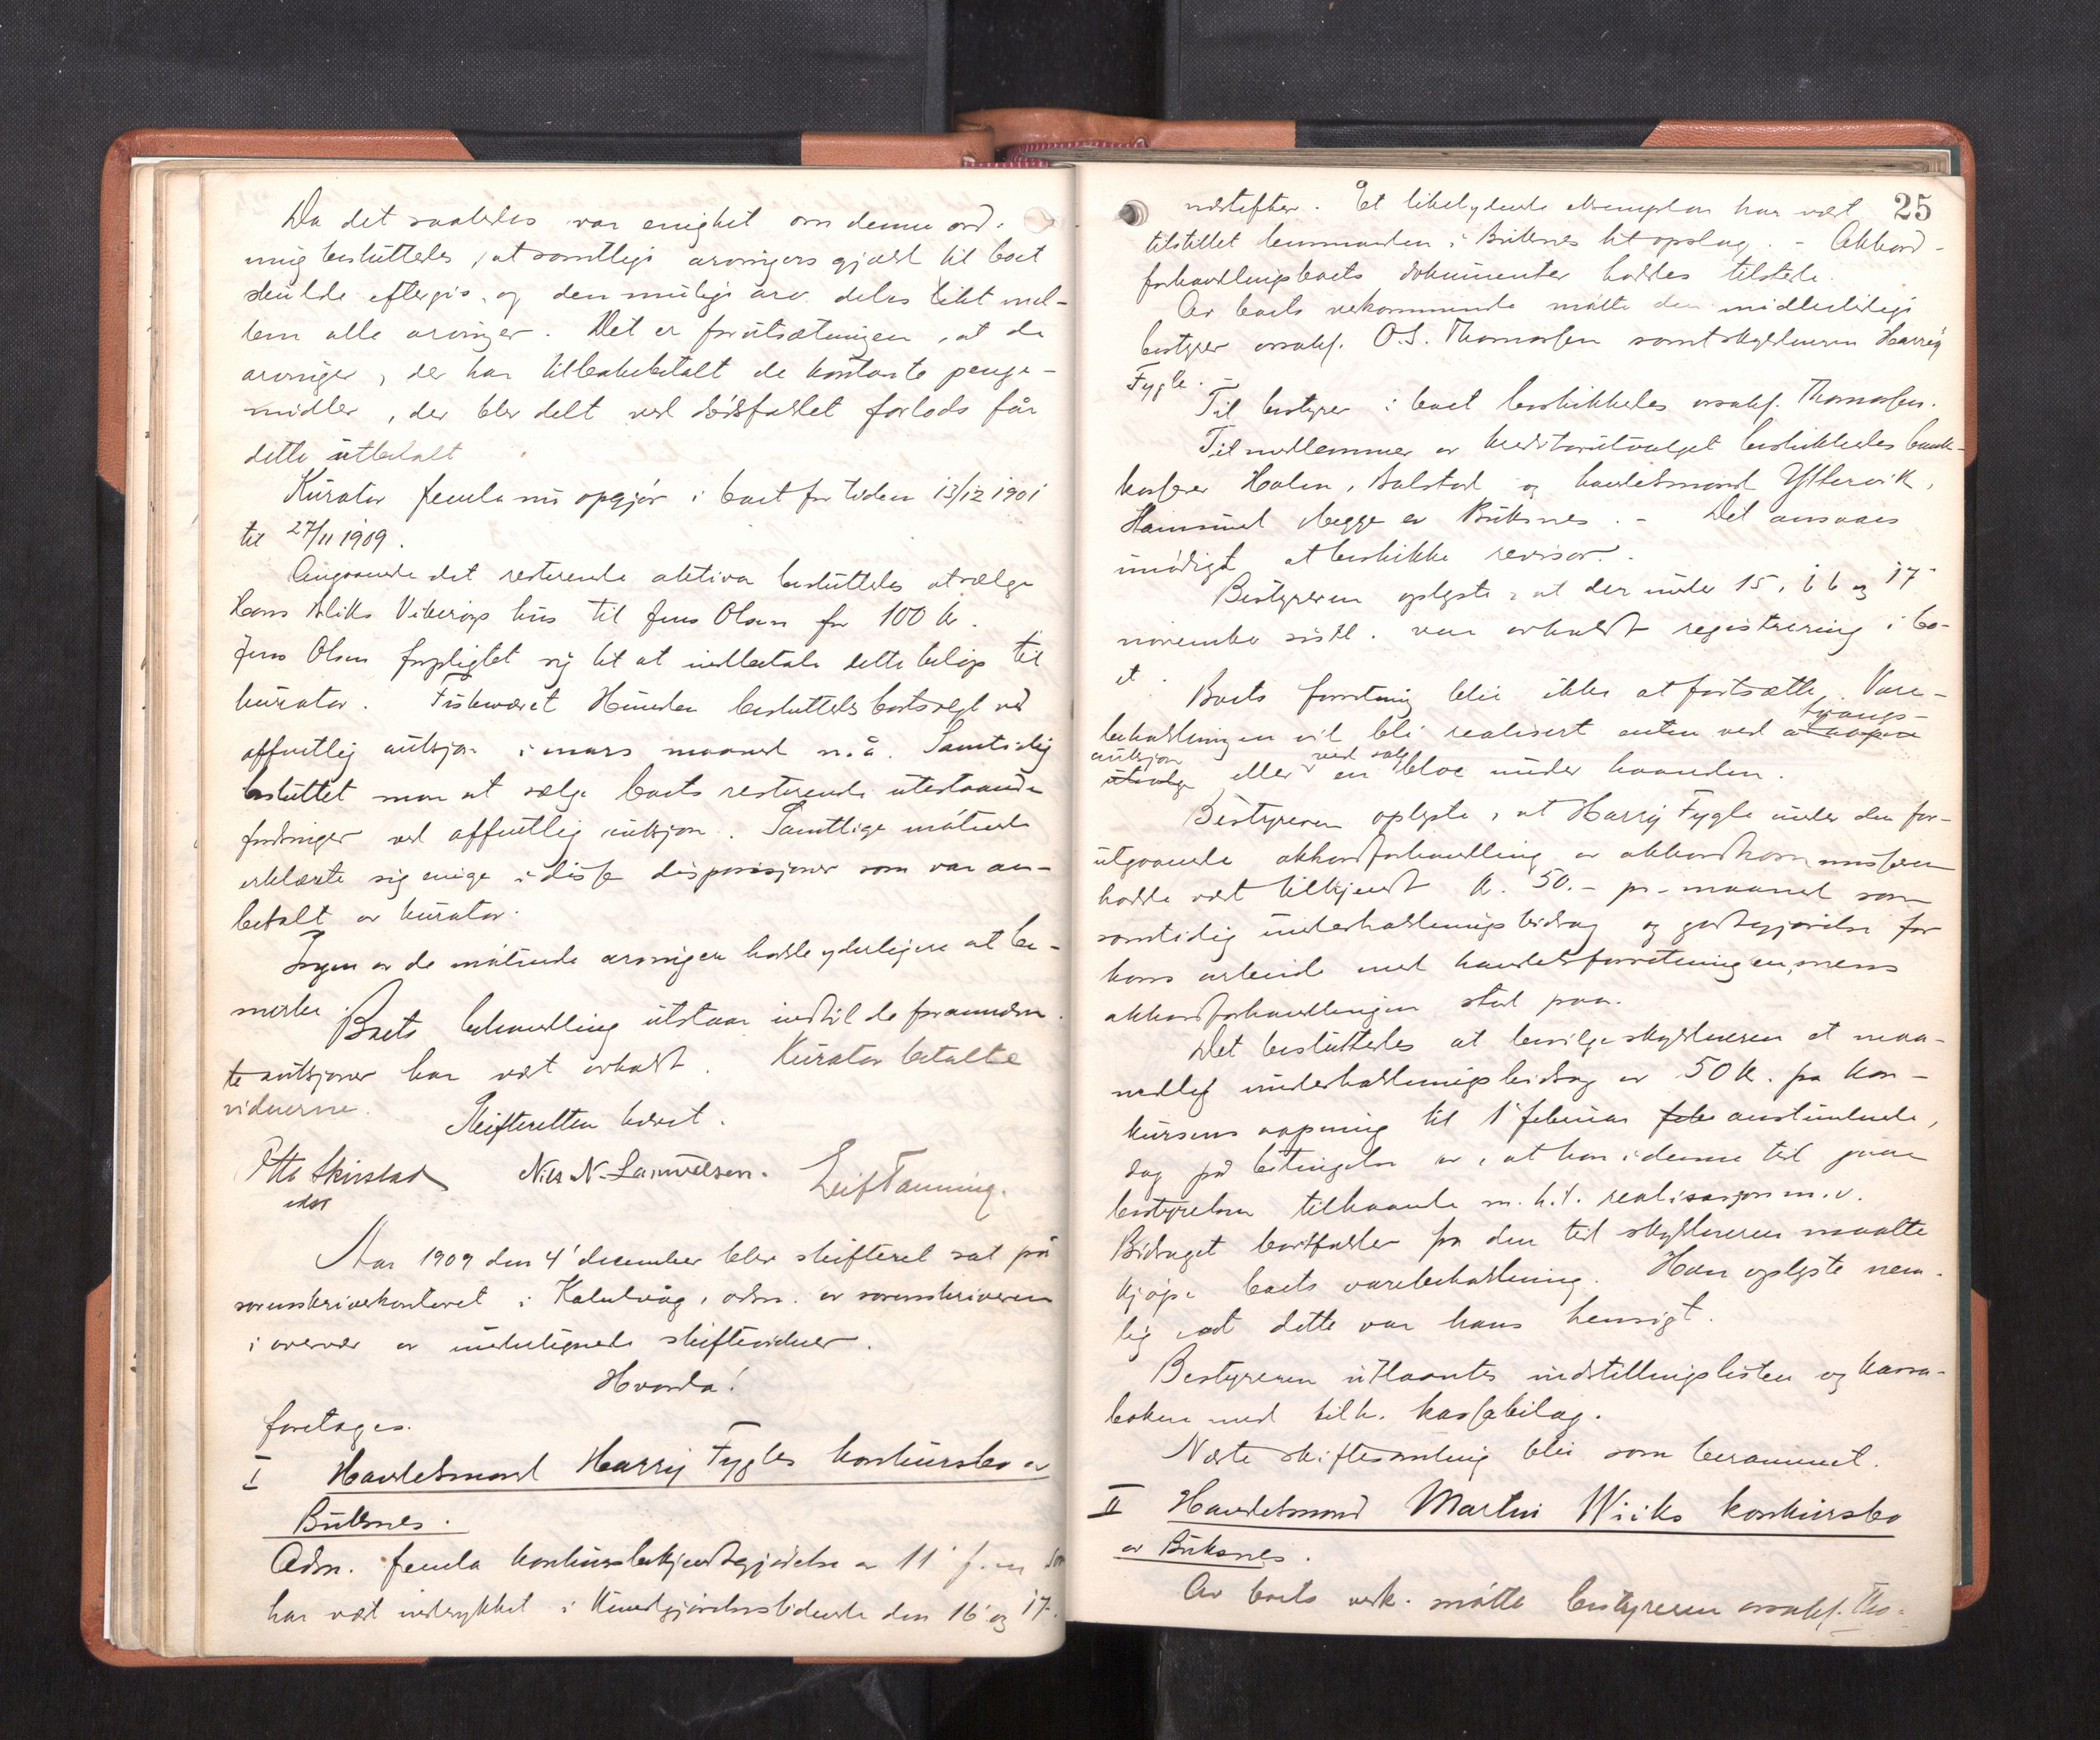 Da det saaledes var enighet om denne ord-
ning besluttedes, at samtlige arvingers gjæld til boet
skulde eftergis, og den mulige arv deles likt mel-
lem alle arvinger. Det er forutsætningen, at de
arvinger, der har tilbakebetalt de kontante penge-
midler, der blev delt ved dødsfaldet forlods får
dette utbetalt
Kurator fremla nu opgjør i boet for tiden 13/12 1901
til 27/11 1909.
Angaaende det resterende aktiva besluttedes at sælge
Hans hus til Jens Olsen for 100 kr.
Jens Olsen forpligtet sig til at indbetale dette beløp til
kurator. Fiskeværet Hunden besluttedes bortsolgt ved
offentlig auksjon i mars maaned n.å. Samtidig
besluttet man at sælge boets resterende utestaaende
fordringer ved offentlig auksjon. Samtlige møtende
erklærte sig enige i disse disposisjoner som var an-
befalt av kurator.
Ingen av de møtende arvinger hadde yderligere at be-
merke.
Boets behandling utstaar indtil de foranndvn-
te auksjoner har vært avholdt. Kurator betalte
vidnerne.
Skifteretten hævet.
Otto Skirstad Nils N. Samuelsen. Leif Tanning.
edsv
Aar 1909 den 4' december blev skifteret sat på
sorenskriverkontoret i Kabelvåg, adm. av sorenskriveren
i overvær av undertegnede skiftevidner.
Hvorda!
foretages.
I Handelsmand Harry Fygles konkursbo av
Buksnes.
Adm. fremla konkursbekjendtgjørelse av 11' f.m. som
har vært indrykket i Kundgjørelsestidende den 16' og 17'.
25
næstefter. Et likelydende eksemplar har vært
tilstillet lensmanden i Buksnes til opslag. - Akkord-
forhandlingsboets dokumenter haddes tilstede.
Av boets vedkommende møtte den midlertidige
bestyrer ovsakf. O.S. Thomassen samt skyldneren Harry
Fygle. -
Til bestyrer i boet beskikkedes ovsakf. Thomassen.
Til medlemmer av kreditorutvalget beskikkedes bank-
kasserer Holm, Balstad og handelsmand Yttervik,
Hamsund begge av Buksnes. - Det ansaaes
unødigt at beskikke revisor.
Bestyreren oplyste, at der under 15, 16 og 17'
november sistl. var avholdt registrering i bo-
et.
Boets forretning blir ikke at fortsætte. Vare-
tvangs-
beholdningen vil bli realisert enten ved
auksjon ved salg
utsalg eller en bloc under haanden.
Bestyreren oplyste, at Harry Fygle under den for-
utgaaende akkordforhandling av akkordkommissjonen
hadde vært tilkjendt kr. 50.- pr. maaned som
samtidig underholdningsbidrag og godtgjørelse for
hans arbeide med handelsforretningen, mens
akkordforhandlingen stod paa.
Det besluttedes at bevilge skyldneren et maa-
nedlig underholdningsbidrag av 50 kr. fra kon-
kursens aapning til 1' februar feb anstundende,
dog på betingelse av, at han i denne tid gaar
bestyrelsen tilhaande m.h.t. realisasjon m.v.
Bidraget bortfalder fra den tid skyldneren maatte
kjøpe boets varebeholdning. Han oplyste nem-
lig at dette var hans hensigt.
Bestyreren utlaantes indstillingslisten og kassa-
boken med tilh. kassabilag.
Næste skiftesamling blir som berammet.
II Handelsmand Martin Wiiks konkursbo
av Buksnes.
Av boets vedk. møtte bestyreren ovsakf. Tho-